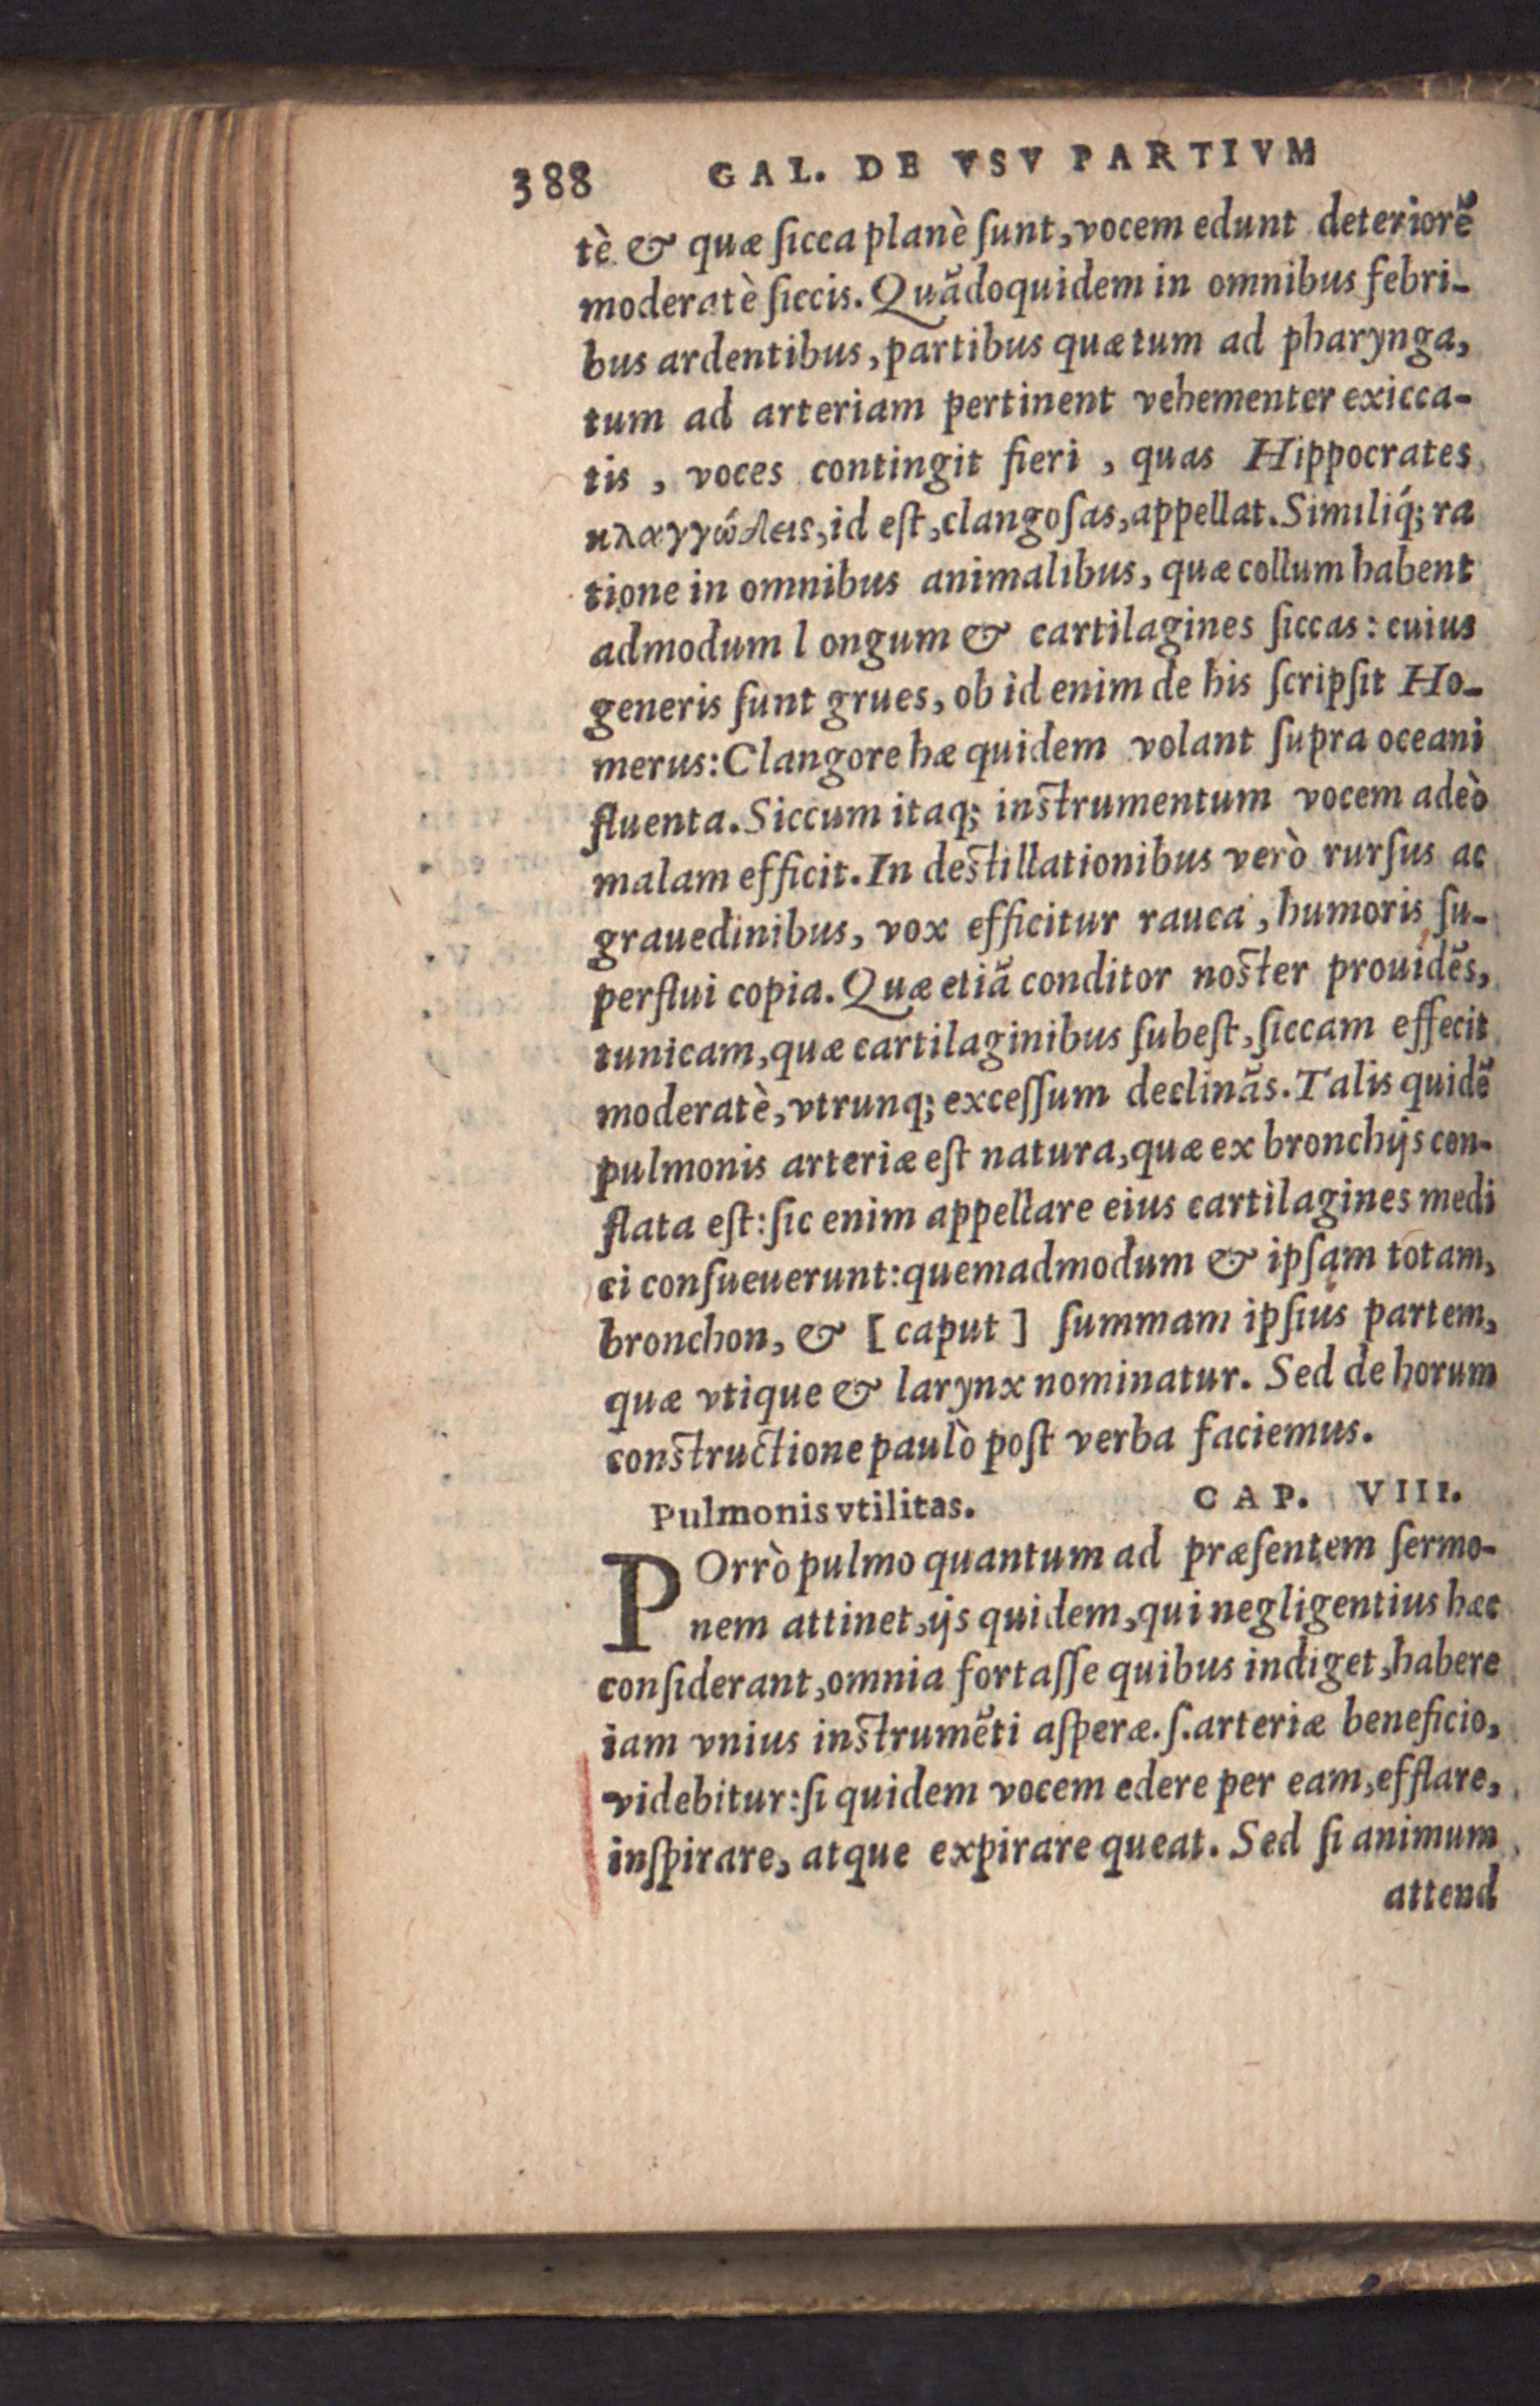 388 GAL. DE VSV PARTIVM
tè & quæ ſicca planè ſunt, vocem edunt deteriorẽ
moderatè ſiccis. Quãdoquidem in omnibus febri-
bus ardentibus, partibus quæ tum ad pharynga,
tum ad arteriam pertinent vehementer exicca-
tis, voces contingit fieri, quas Hippocrates
κλαγγώδεις, id eſt, clangoſas, appellat. Similiq́; ra
tione in omnibus animalibus, quæ collum habent
admodum l ongum & cartilagines ſiccas: cuius
generis ſunt grues, ob id enim de his ſcripſit Ho-
merus: Clangore hæ quidem volant ſupra oceani
fluenta. Siccum itaq; inſtrumentum vocem adeò
malam efficit. In deſtillationibus verò rurſus ac
grauedinibus, vox efficitur rauca, humoris ſu-
perflui copia. Quæ etiã conditor noſter prouidẽs,
tunicam, quæ cartilaginibus ſubeſt, ſiccam effecit
moderatè, vtrunq; exceſſum declinãs. Talis quidẽ
pulmonis arteriæ eſt natura, quæ ex bronchijs con-
flata eſt: ſic enim appellare eius cartilagines medi
ci conſueuerunt: quemadmodum & ipſam totam,
bronchon, & [caput] ſummam ipſius partem,
quæ vtique & larynx nominatur. Sed de horum
conſtructione paulò poſt verba faciemus.
Pulmonis vtilitas. CAP. VIII.
POrrò pulmo quantum ad præſentem ſermo-
nem attinet, ijs quidem, qui negligentius hæc
conſiderant, omnia fortaſſe quibus indiget, habere
iam vnius inſtrumẽti aſperæ. ſ. arteriæ beneficio,
videbitur: ſi quidem vocem edere per eam, efflare,
inſpirare, atque expirare queat. Sed ſi animum
attend